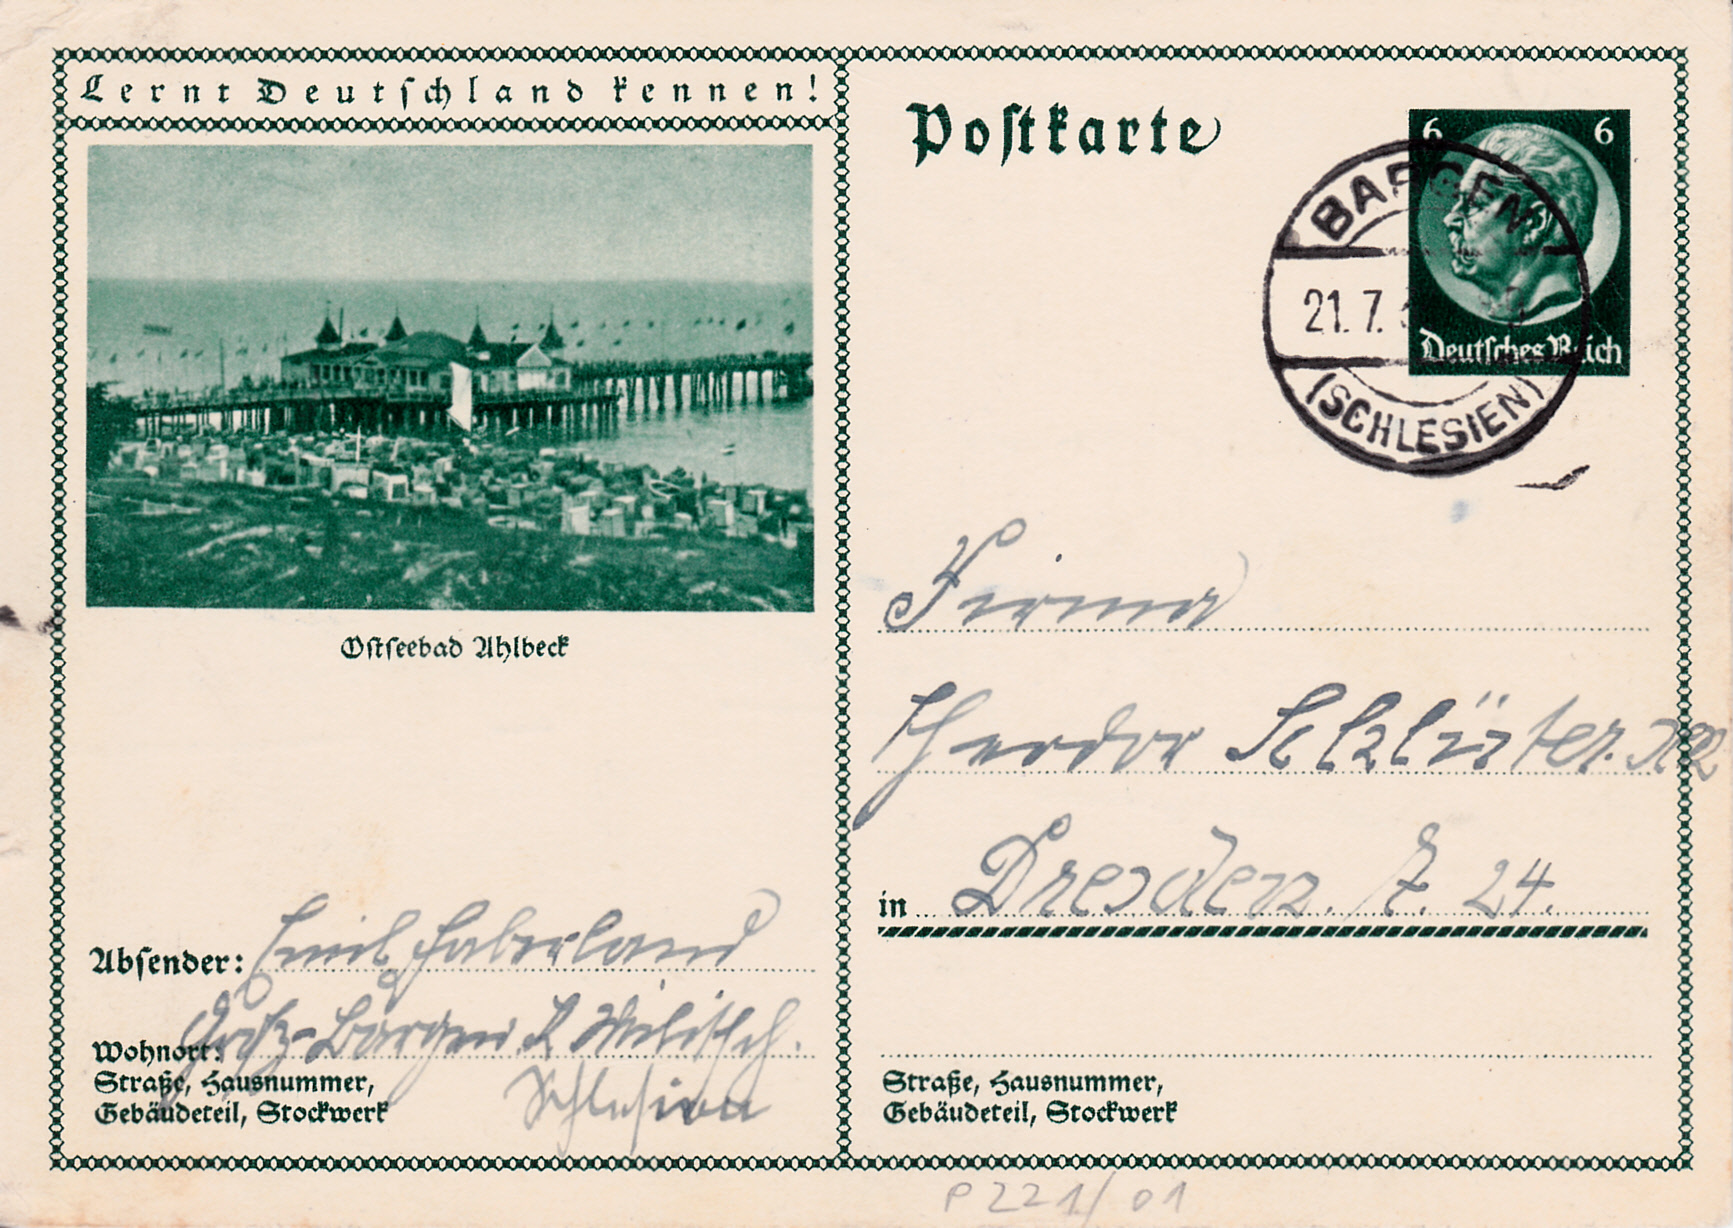 Lernt Deutschland kennen!
Postkarte
6 6
Deutsches Reich
BARGEN
21. 7.
(SCHLESIEN)
Ostseebad Ahlbeck
Firma
Theodor
in Dresden. A. 24.
Absender: Emil Haberland
Wohnort: Groß-Bargen. Militsch.
Schlesien
Straße, Hausnummer,
Gebäudeteil, Stockwerk
Straße, Hausnummer,
Gebäudeteil, Stockwerk
P 221/01